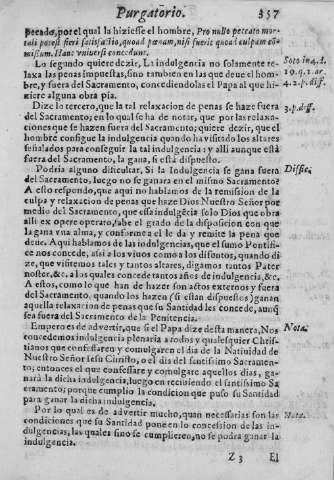 Purgatorio. 357
pecado, por el qual la hiziesse el hombre, Pro nullo peccato mor-
tali potest fieri satisfactio, quoad pœnam, nisi fuerit quoad culpam
missum. Hanc vniuersi concedunt.
Lo segundo quiere dezir, La indulgencia no solamente re-
laxa las penas impuestas, sino tambien en las que deue el hom-
bre, y fuera del Sacramento, concediendolas el Papa al que hi-
ziere alguna obra pia.
Soto in 4. d.
19. q. 1. ar.
4. 2. p. diff.
Dize lo tercero, que la tal relaxacion de penas se haze fuera
del Sacramento; en lo qual se ha de notar, que por las relaxacio-
nes que se hazen fuera del Sacramento, quiere dezir, que el
hombre consigue la indulgencia quando ha visitado los altares
señalados para conseguir la tal indulgencia: y alli aunque está
fuera del Sacramento, la gana, si está dispuesto.
3. p. diff.
Podria alguno dificultar, Si la Indulgencia se gana fuera
del Sacramento, luego no se ganara en el mismo Sacramento?
A esto respondo, que aqui no hablamos de la remission de la
culpa y relaxacion de penas que haze Dios Nuestro Señor por
medio del Sacramento, que essa indulgēcia solo Dios que obra
alli ex opere operato, sabe el grado de la disposicion con que
la gana vna alma, y conforme a el le da y remite la pena que
deue. Aqui hablamos de las indulgencias, que el sumo Pontifi-
ce nos concede, assi a los viuos como a los difuntos, quando di-
ze, que visitemos tales y tantos altares, digamos tantos Pater
noster, &c. a los quales concede tantos años de indulgencia, &c.
A estos, como lo que han de hazer son actos externos y fuera
del Sacramento, quando los hazen (si estan dispuestos) ganan
aquella relaxacion de penas que su Santidad les concede, aunq̃
sea fuera del Sacramento de la Penitencia.
Difficl.
Empero es de advertir, que si el Papa dize desta manera, Nos
concedemos indulgencia plenaria a todos y qualesquier Chris-
tianos que confessaren y comulgaren el dia de la Natiuidad de
Nuestro Señor Iesu Christo, o el dia del santissimo Sacramen-
to; entonces el que confessare y comulgare aquellos dias, ga-
nará la dicha indulgencia, luego en recibiendo el santissimo Sa
cramento; porque cumplio la condicion que puso su Santidad
para ganar la dicha indulgencia.
Nota.
Por lo qual es de advertir mucho, quan necessarias son las
condiciones que su Santidad pone en lo concession de las in-
dulgencias, las quales sino se cumplieren, no se podra ganar la
indulgencia.
Nota.
Z 3 El